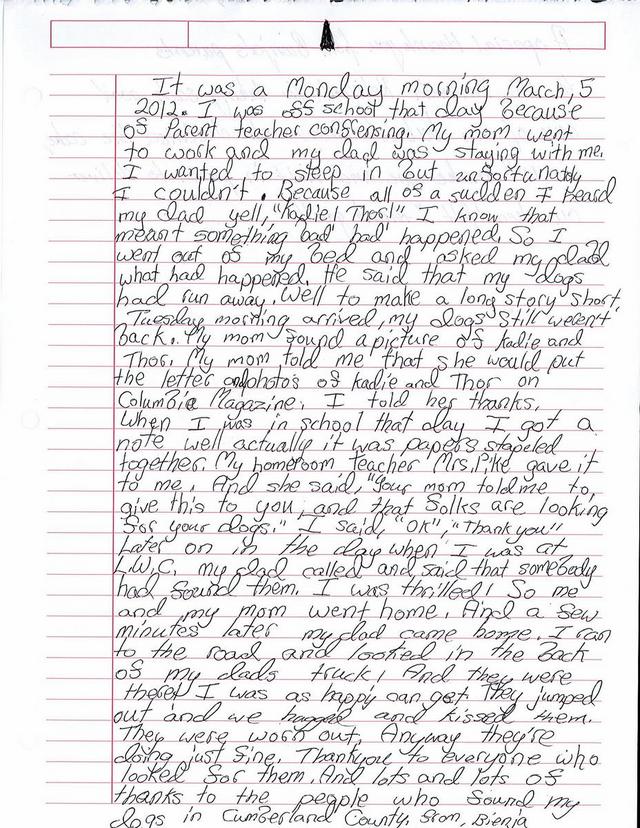 It was a Monday morning March, 5
2012. I was off school that day because
of Parent teacher confrensing. My mom went
to work and my dad was staying with me.
I wanted to sleep in but unfortunately
I couldn't. Because all of a sudden I heard
my dad yell, "Kadie! Thor!" I know that
meant something bad bad happened. So I
went out of my bed and asked my dad
what had happened. He said that my dogs
had run away. Well to make a long story short,
Tuesday morning arrived, my dogs still weren't
back. My mom found a picture of Kadie and
Thor. My mom told me that she would put
the letter and photos of Kadie and Thor on
Columbia Magazine. I told her thanks.
When I was in school that day I got a
note well actually it was papers stapeled
together. My homeroom teacher Mrs. Pike gave it
to me. And she said, "Your mom told me to,
give this to you, and that folks are looking
for your dogs." I said, "OK", "Thank you"
Later on in the day when I was at
L.W.C. my dad called and said that somebody
had found them. I was thrilled! So me
and my mom went home. And a few
minutes later my dad came home. I ran
to the road and looked in the back
of my dads truck! And they were
there! I was as happy can get. They jumped
out and we hugged and kissed them.
They were worn out. Anyway they're
doing just fine. Thankyou to everyone who
looked for them. And lots and lots of
thanks to the people who found my
dogs in Cumberland County. From, Bienja